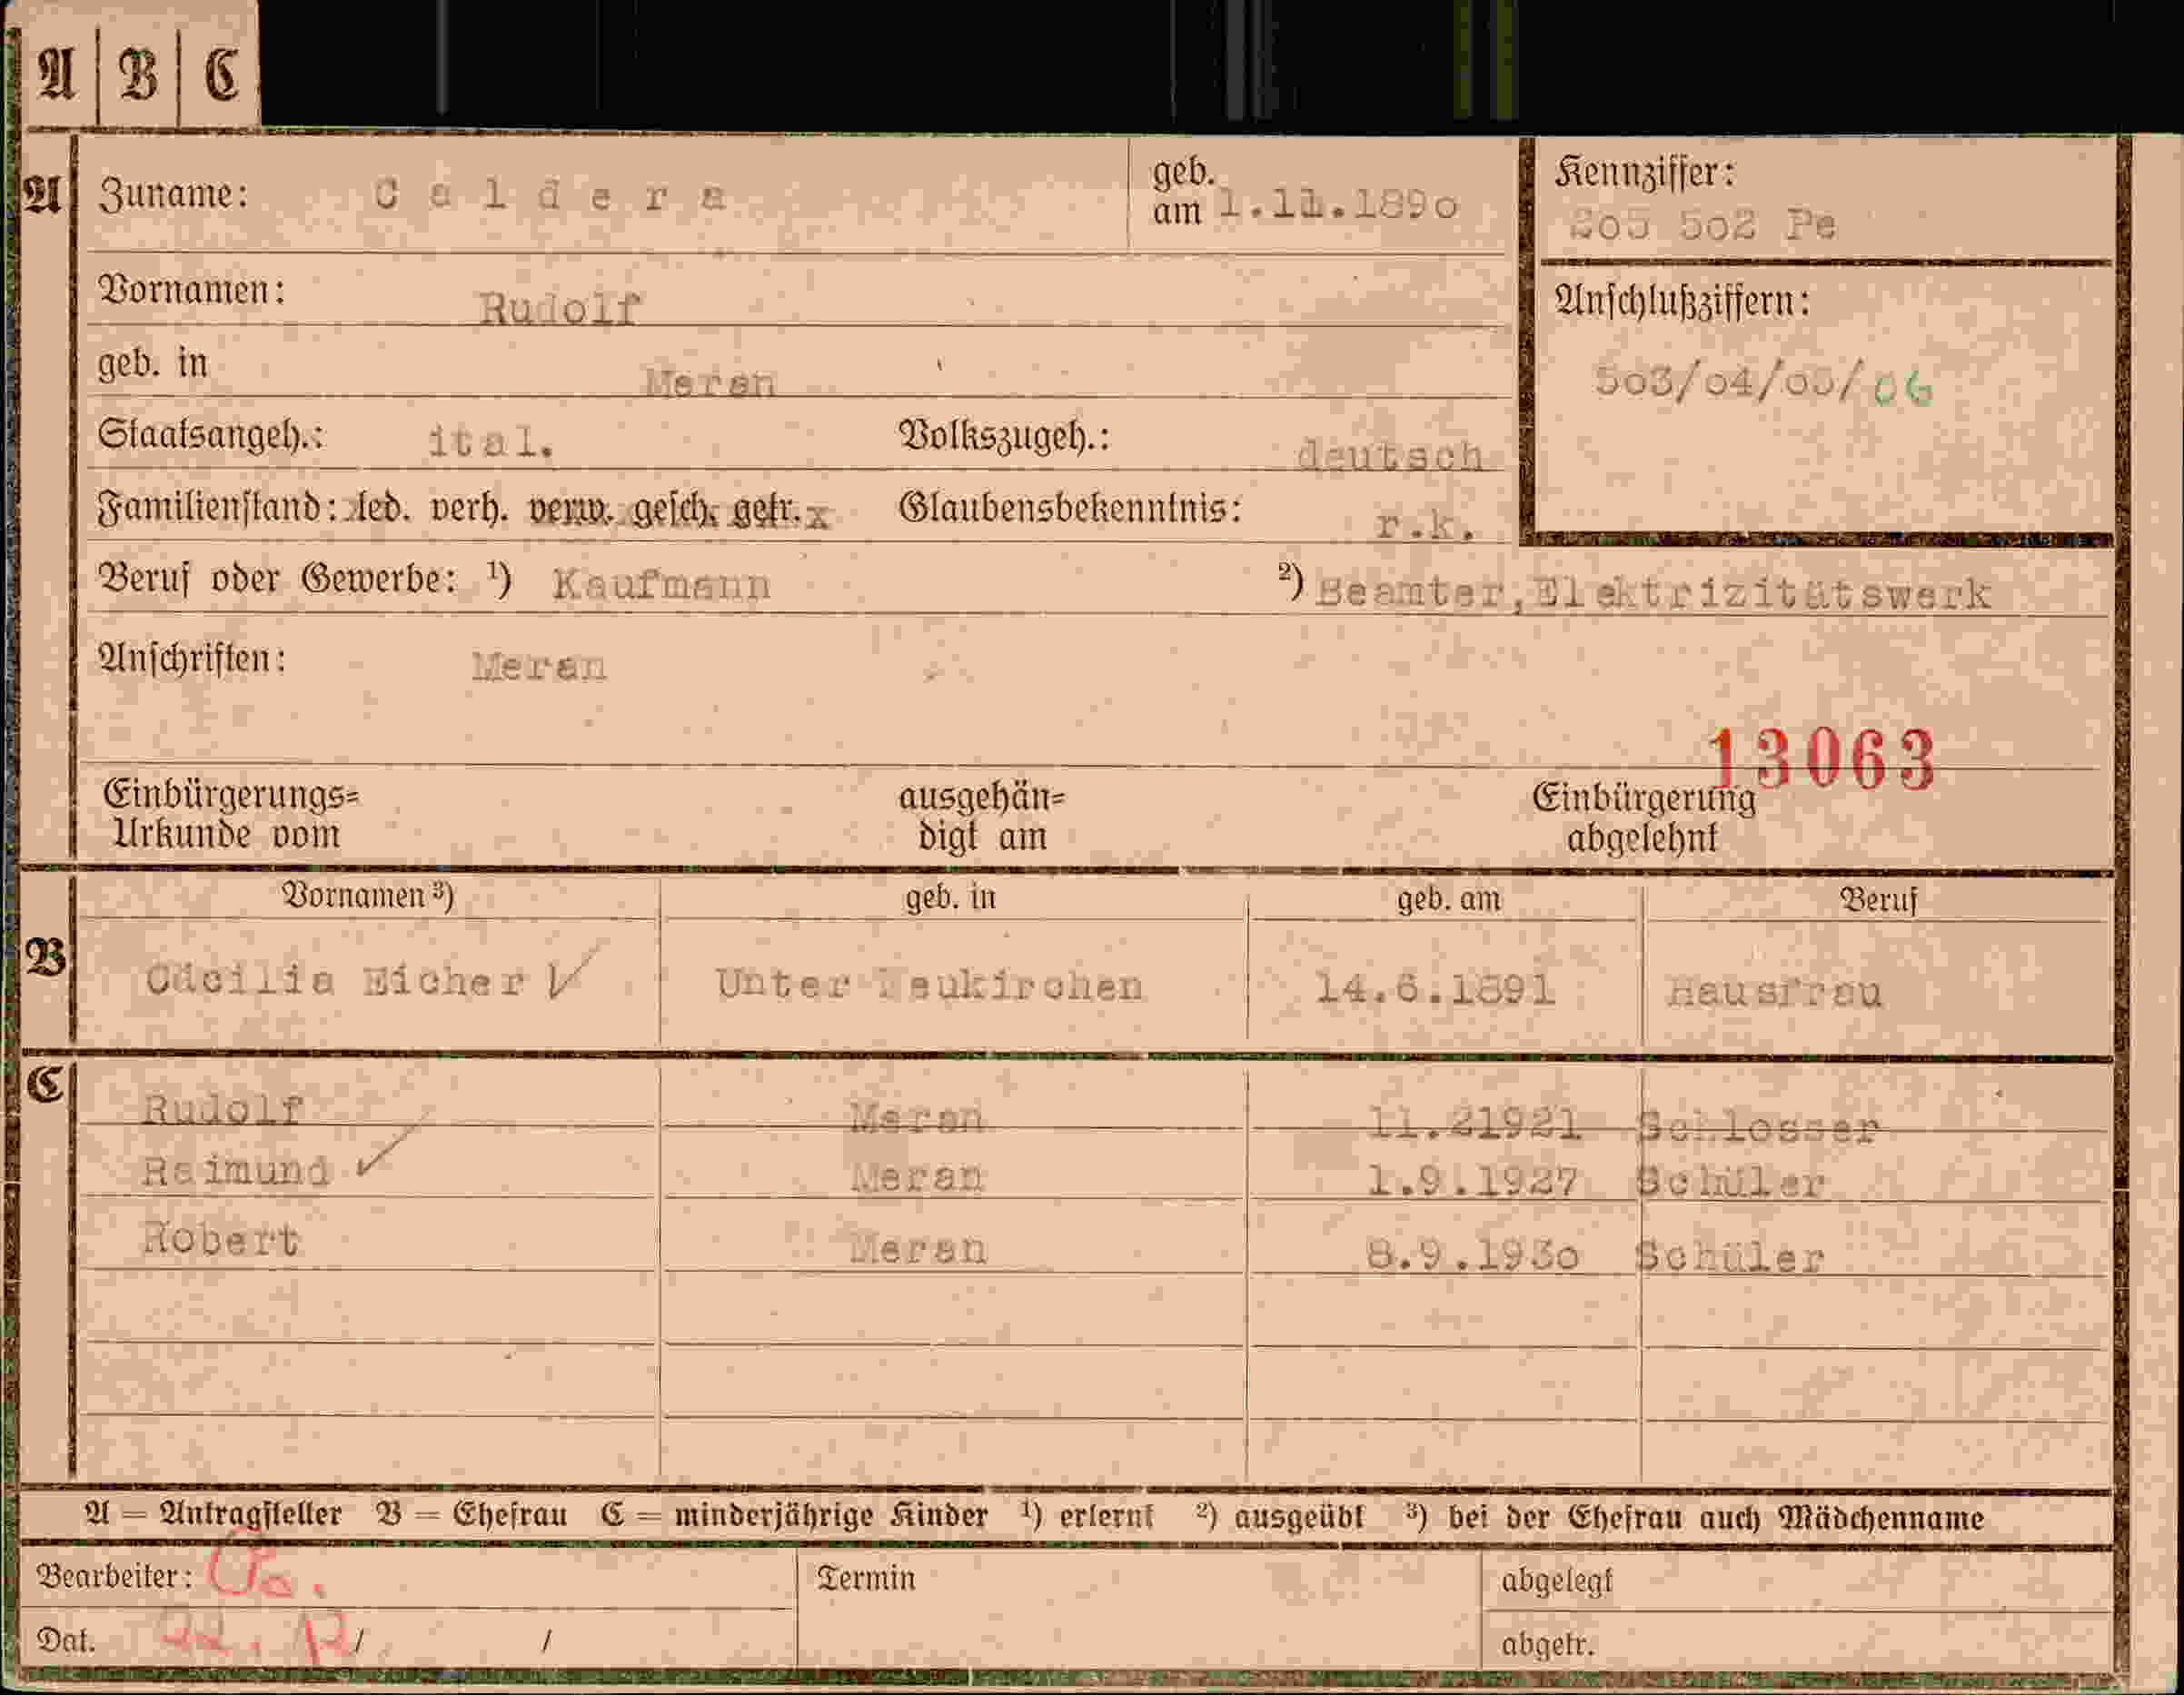 A B C
A Zuname: Caldera geb. am 1.11.1890
Kennziffer:
205 502 Pe
Vornamen: Rudolf
Anschlußziffern:
503/04/05/06
geb. in Meran
Staatsangeh.: ital. Volkszugeh.: deutsch
Familienstand: led. verh. verw. gesch. getr. x Glaubensbekenntnis: r.k.
Beruf oder Gewerbe: 1) Kaufmann 2) Beamter,Elektrizitätswerk
Anschriften: Meran
13063
Einbürgerungs=
Urkunde vom
ausgehän=
digt am
Einbürgerung
abgelehnt
Vornamen 3) geb. in geb. am Beruf
B Cäcilia Eicher Unter Neukirchen 14.6.1891 Hausfrau
C
Rudolf Meran 11.21921 Schlosser
Raimund Meran 1.9.1927 Schüler
Robert Meran 8.9.1930 Schüler
A = Antragsteller B = Ehefrau C = minderjährige Kinder 1) erlernt 2) ausgeübt 3) bei der Ehefrau auch Mädchenname
Bearbeiter: Termin abgelegt
Dat. 22. 12 / / abgetr.